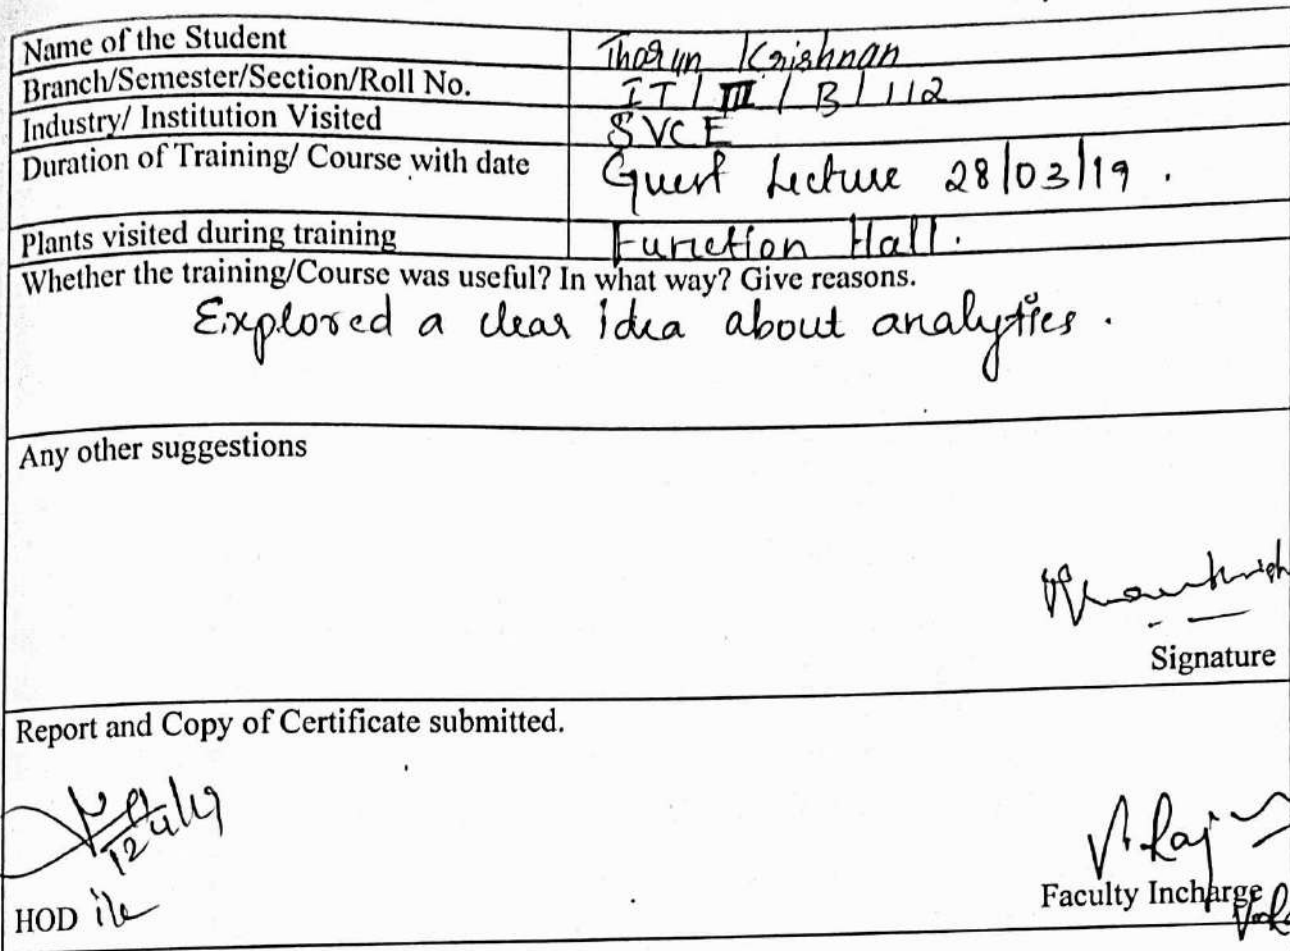 Name of the Student Thorun Krishnan
Branch/Semester/Section/Roll No. IT / III / B / 112
Industry/ Institution Visited SVCE
Duration of Training/ Course with date Guest Lecture 28/03/19 .
Plants visited during training Function Hall.
Whether the training/Course was useful? In what way? Give reasons.
Explored a clear idea about analytics .
Any other suggestions
Signature
Report and Copy of Certificate submitted.
HOD
Faculty Incharge